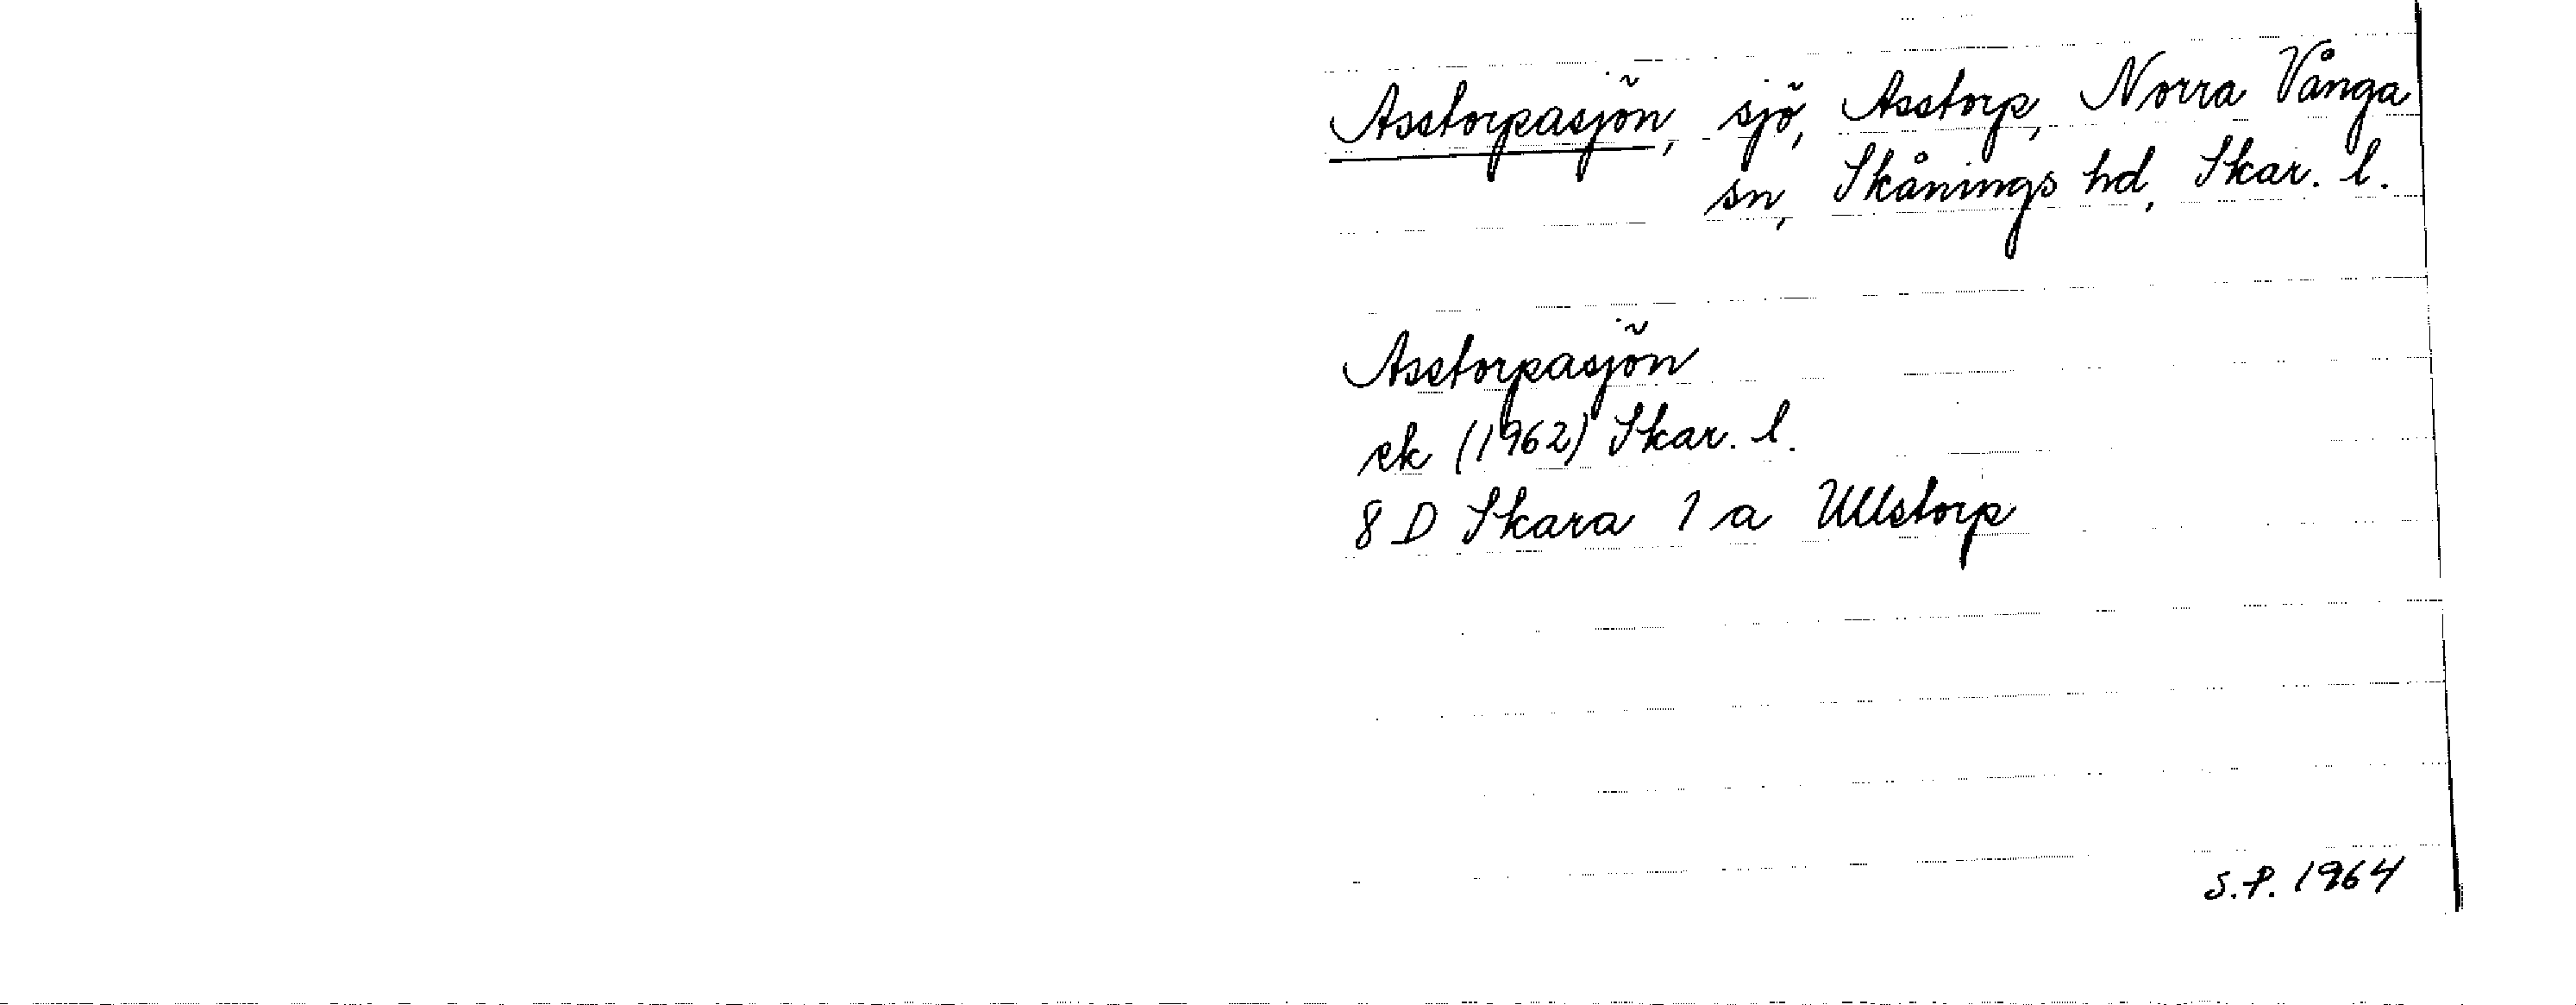 Asstorpasjön, sjö, Asstorp, Norra Vånga
sn, Skånings hd, Skar. l.
Asstorpasjön
ek (1962) Skar. l.
8 D Skara 1 a Ullstorp
S.P. 1964